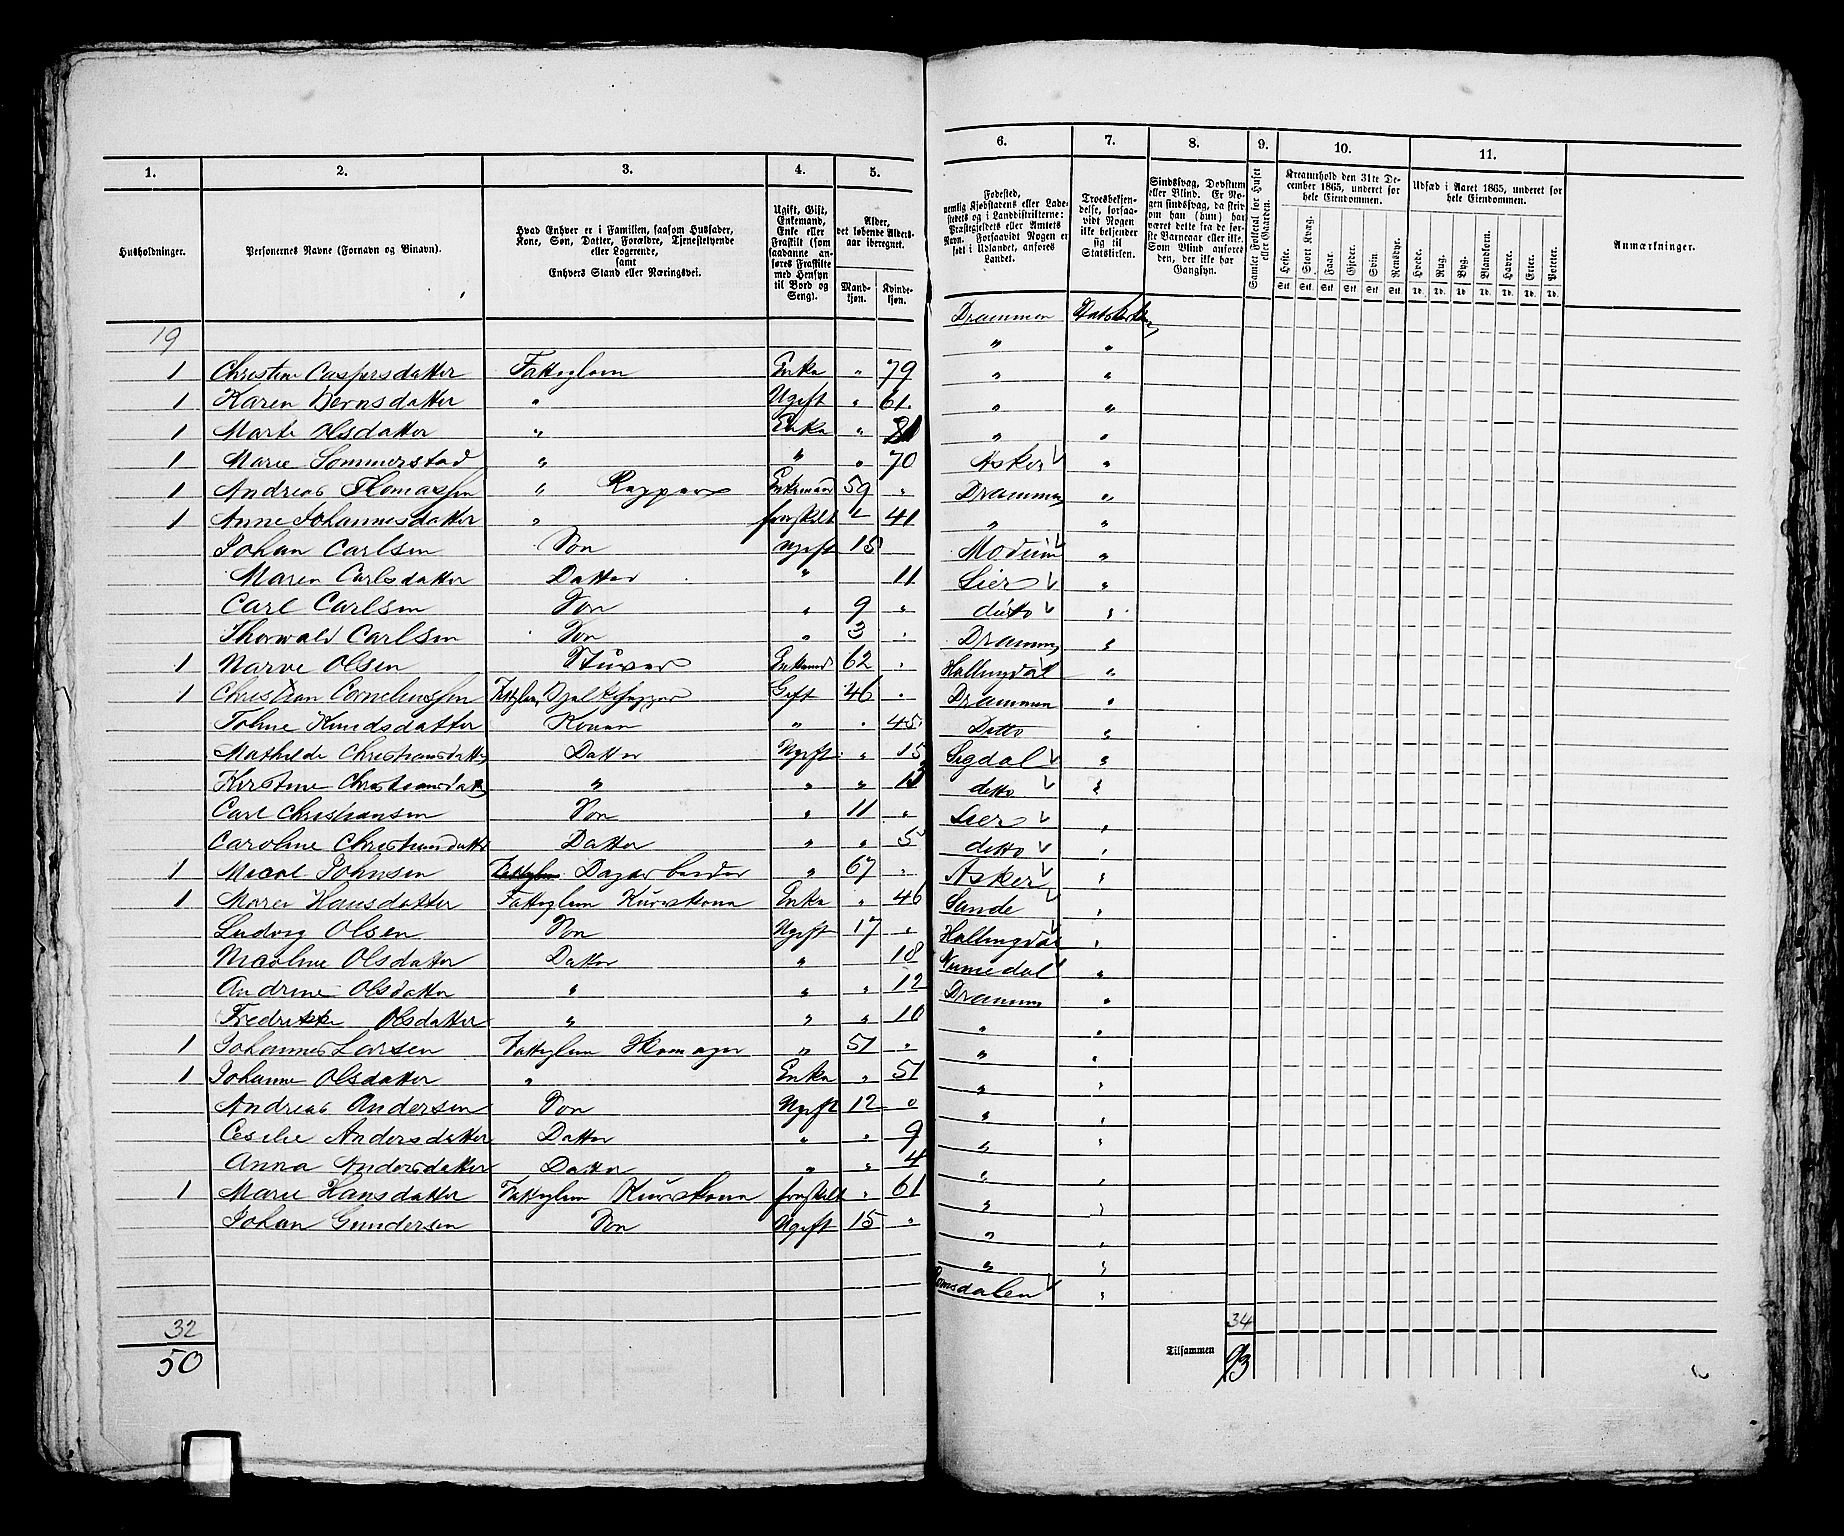 1. 2. 3. 4. 5.
Husholdninger.
Personernes Navne (Fornavn og Binavn).
Hvad Enhver er i Familien, saasom Husfader, Kone, Søn, Datter, Forældre, Tjenestetyende eller Logerende, samt Enhvers Stand eller Næringsvei.
Ugift, Gift, Enkemand, Enke eller Fraskilt (som saadanne anføres Fraskilte med Hensyn til Bord og Seng).
Alder, det løbende Aldersaar iberegnet.
Mandkjøn. Kvindekjøn.
19
1 Christine Caspersdatter Fattiglem Enke " 79
1 Karen Berns datter " Ugift " 61
1 Marte Olsdatter " Enke " 81
1 Marie Sommerstad " " " 70
1 Andreas Thomassen " Enkemand 59 "
1 Anne Johannesdatter " fraskilt " 41
Johan Carlsen Søn Ugift 15
Maren Carlsdatter Datter " 11
Carl Carlsen Søn " 9 "
Thorwald Carlsen Søn " 3 "
1 Narve Olsen Stuver Enkemd 62 "
1 Christian Corneliussen Fattiglem, Gift 46 "
Tohne Knudsdatter Konen " " 45
Mathilde Christiansdatter Datter Ugift " 15
Kirstine Christiansdatter " " "
Carl Christiansen Søn " 11 "
Caroline Christiansdatter Datter " " 5
1 Nicol Johnsen Dagarbeider " 67 "
1 Maren Hansdatter Fattiglem Enke " 46
Ludvig Olsen Søn Ugift 17 "
Nicoline Olsdatter Datter " 18
Andrine Olsdatter " " " 12
Fredrikke Olsdatter " " " 10
1 Johannes Larsen Fattiglem Skomager " 51 "
1 Johanne Olsdatter " Enke " 51
Andreas Andersen Søn Ugift 12 "
Cesilie Andersdatter Datter " " 9
Anna Andersdatter Datter " " 4
1 Marie Hansdatter Fattiglem fraskilt " 61
Johan Gundersen Søn Ugift 15 "
32
50
6. 7. 8. 9. 10. 11.
Fødested, nemlig Kjøbstadens eller Ladestedets og i Landdistrikterne: Præstegjeldets eller Amtets Navn. Forsaavidt Nogen er født i Udlandet, anføres Landet.
Troesbekjendelse, forsaavidt Nogen ikke bekjender sig til Statskirken.
Sindssvag, Døvstum eller Blind. Er Nogen sindssvag, da skrives om han (hun) har været dette fra de første Barneaar eller ikke. Som Blind anføres den, der ikke har Gangsyn.
Samlet Folketal for Huset eller Gaarden.
Kreaturhold den 31te December 1865, underet for hele Eiendommen.
Heste. Stort Kvæg. Faar. Gjeder. Svin. Rensdyr.
Stk. Stk. Stk. Stk. Stk. Stk.
Udsæd i Aaret 1865, underet for hele Eiendommen.
Hvede. Rug. Byg. Blandkorn. Havre. Erter. Poteter.
Td. Td. Td. Td. Td. Td. Td.
Anmærkninger.
Drammen Statskirken
" "
" "
" "
" "
Asker "
Drammen "
" "
Modum "
Lier "
ditto "
Drammen "
Hallingdal "
Drammen "
Ditto "
Sigdal "
ditto "
Lier "
ditto "
Asker "
Sande "
Hallingdal "
Numedal "
Drammen "
" "
" "
" "
" "
" "
" "
" "
" "
" "
Romsdalen "
34
Tilsammen 93